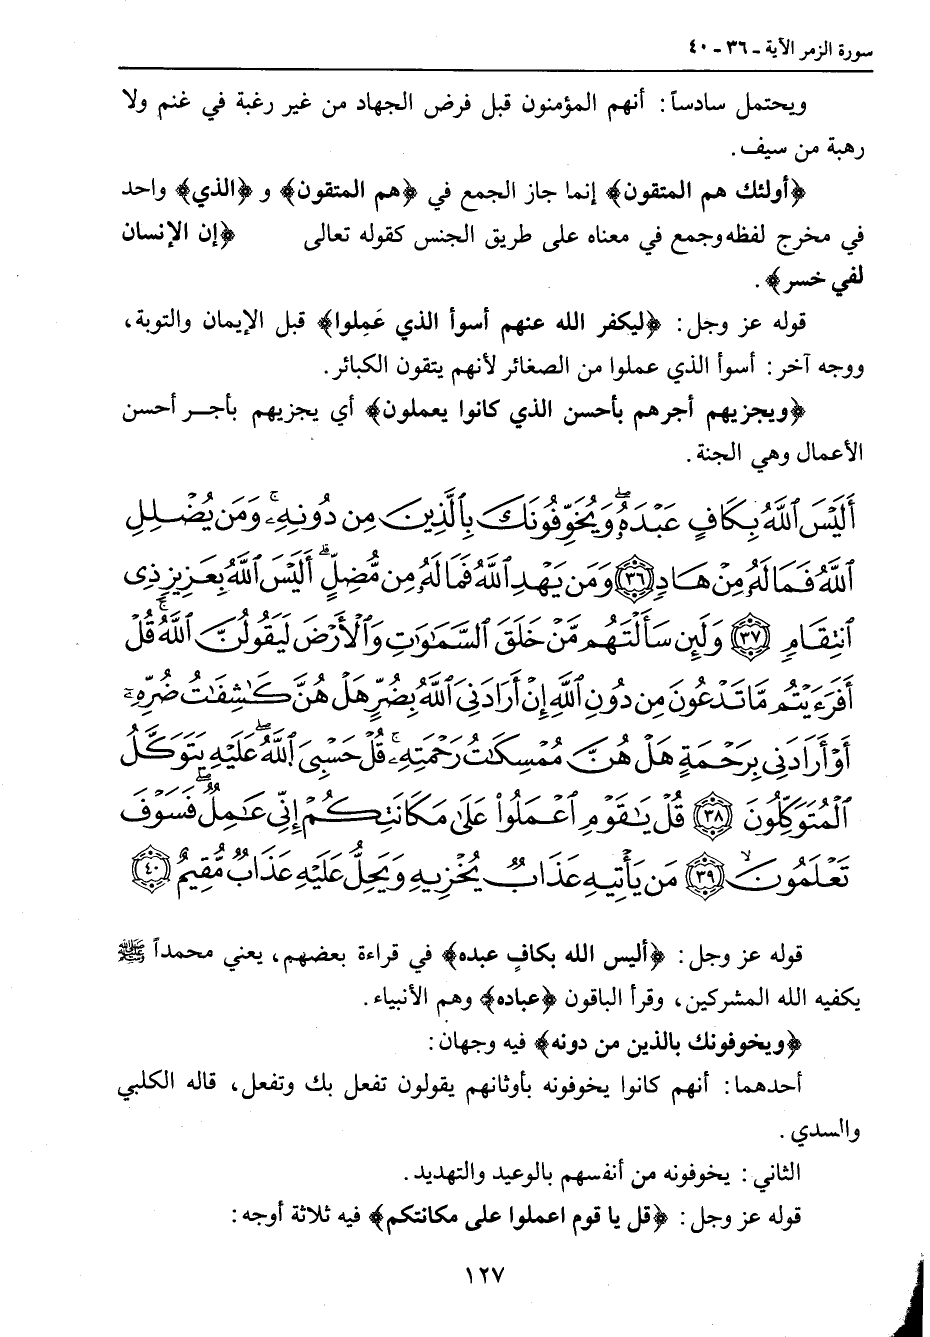 سورة الزمر الآية ـ ٣٦ - ٤٠
ويحتمل سادساً: أنهم المؤمنون قبل فرض الجهاد من غير رغبة في غنم ولا
رهبة من سيف.
﴿أولئك هم المتقون﴾ إنما جاز الجمع في ﴿هم المتقون﴾ و ﴿الذي﴾ واحد
في مخرج لفظه وجمع في معناه على طريق الجنس كقوله تعالى ﴿إن الإنسان
لفي خسر﴾.
قوله عز وجل: ﴿ليكفر الله عنهم أسوأ الذي عَمِلوا﴾ قبل الإيمان والتوبة،
ووجه آخر: أسوأ الذي عملوا من الصغائر لأنهم يتقون الكبائر.
﴿ويجزيهم أجرهم بأحسن الذي كانوا يعملون﴾ أي يجزيهم بأجر أحسن
الأعمال وهي الجنة.
أَلَيْسَ ٱللَّهُ بِكَافٍ عَبْدَهُۥۖ وَيُخَوِّفُونَكَ بِٱلَّذِينَ مِن دُونِهِۦۚ وَمَن يُضْلِلِ
ٱللَّهُ فَمَا لَهُۥ مِنْ هَادٍ ٣٦ وَمَن يَهْدِ ٱللَّهُ فَمَا لَهُۥ مِن مُّضِلٍّۗ أَلَيْسَ ٱللَّهُ بِعَزِيزٍ ذِى
ٱنتِقَامٍ ٣٧ وَلَئِن سَأَلْتَهُم مَّنْ خَلَقَ ٱلسَّمَٰوَٰتِ وَٱلْأَرْضَ لَيَقُولُنَّ ٱللَّهُۚ قُلْ
أَفَرَءَيْتُم مَّا تَدْعُونَ مِن دُونِ ٱللَّهِ إِنْ أَرَادَنِىَ ٱللَّهُ بِضُرٍّ هَلْ هُنَّ كَٰشِفَٰتُ ضُرِّهِۦٓ
أَوْ أَرَادَنِى بِرَحْمَةٍ هَلْ هُنَّ مُمْسِكَٰتُ رَحْمَتِهِۦۚ قُلْ حَسْبِىَ ٱللَّهُۖ عَلَيْهِ يَتَوَكَّلُ
ٱلْمُتَوَكِّلُونَ ٣٨ قُلْ يَٰقَوْمِ ٱعْمَلُوا۟ عَلَىٰ مَكَانَتِكُمْ إِنِّى عَٰمِلٌۖ فَسَوْفَ
تَعْلَمُونَ ٣٩ مَن يَأْتِيهِ عَذَابٌ يُخْزِيهِ وَيَحِلُّ عَلَيْهِ عَذَابٌ مُّقِيمٌ ٤٠
قوله عز وجل: ﴿أليس الله بكافٍ عبده﴾ في قراءة بعضهم، يعني محمداً ﷺ
يكفيه الله المشركين، وقرأ الباقون ﴿عباده﴾ وهم الأنبياء.
﴿ويخوفونك بالذين من دونه﴾ فيه وجهان:
أحدهما: أنهم كانوا يخوفونه بأوثانهم يقولون تفعل بك وتفعل، قاله الكلبي
والسدي.
الثاني: يخوفونه من أنفسهم بالوعيد والتهديد.
قوله عز وجل: ﴿قل يا قوم اعملوا على مكانتكم﴾ فيه ثلاثة أوجه:
١٢٧